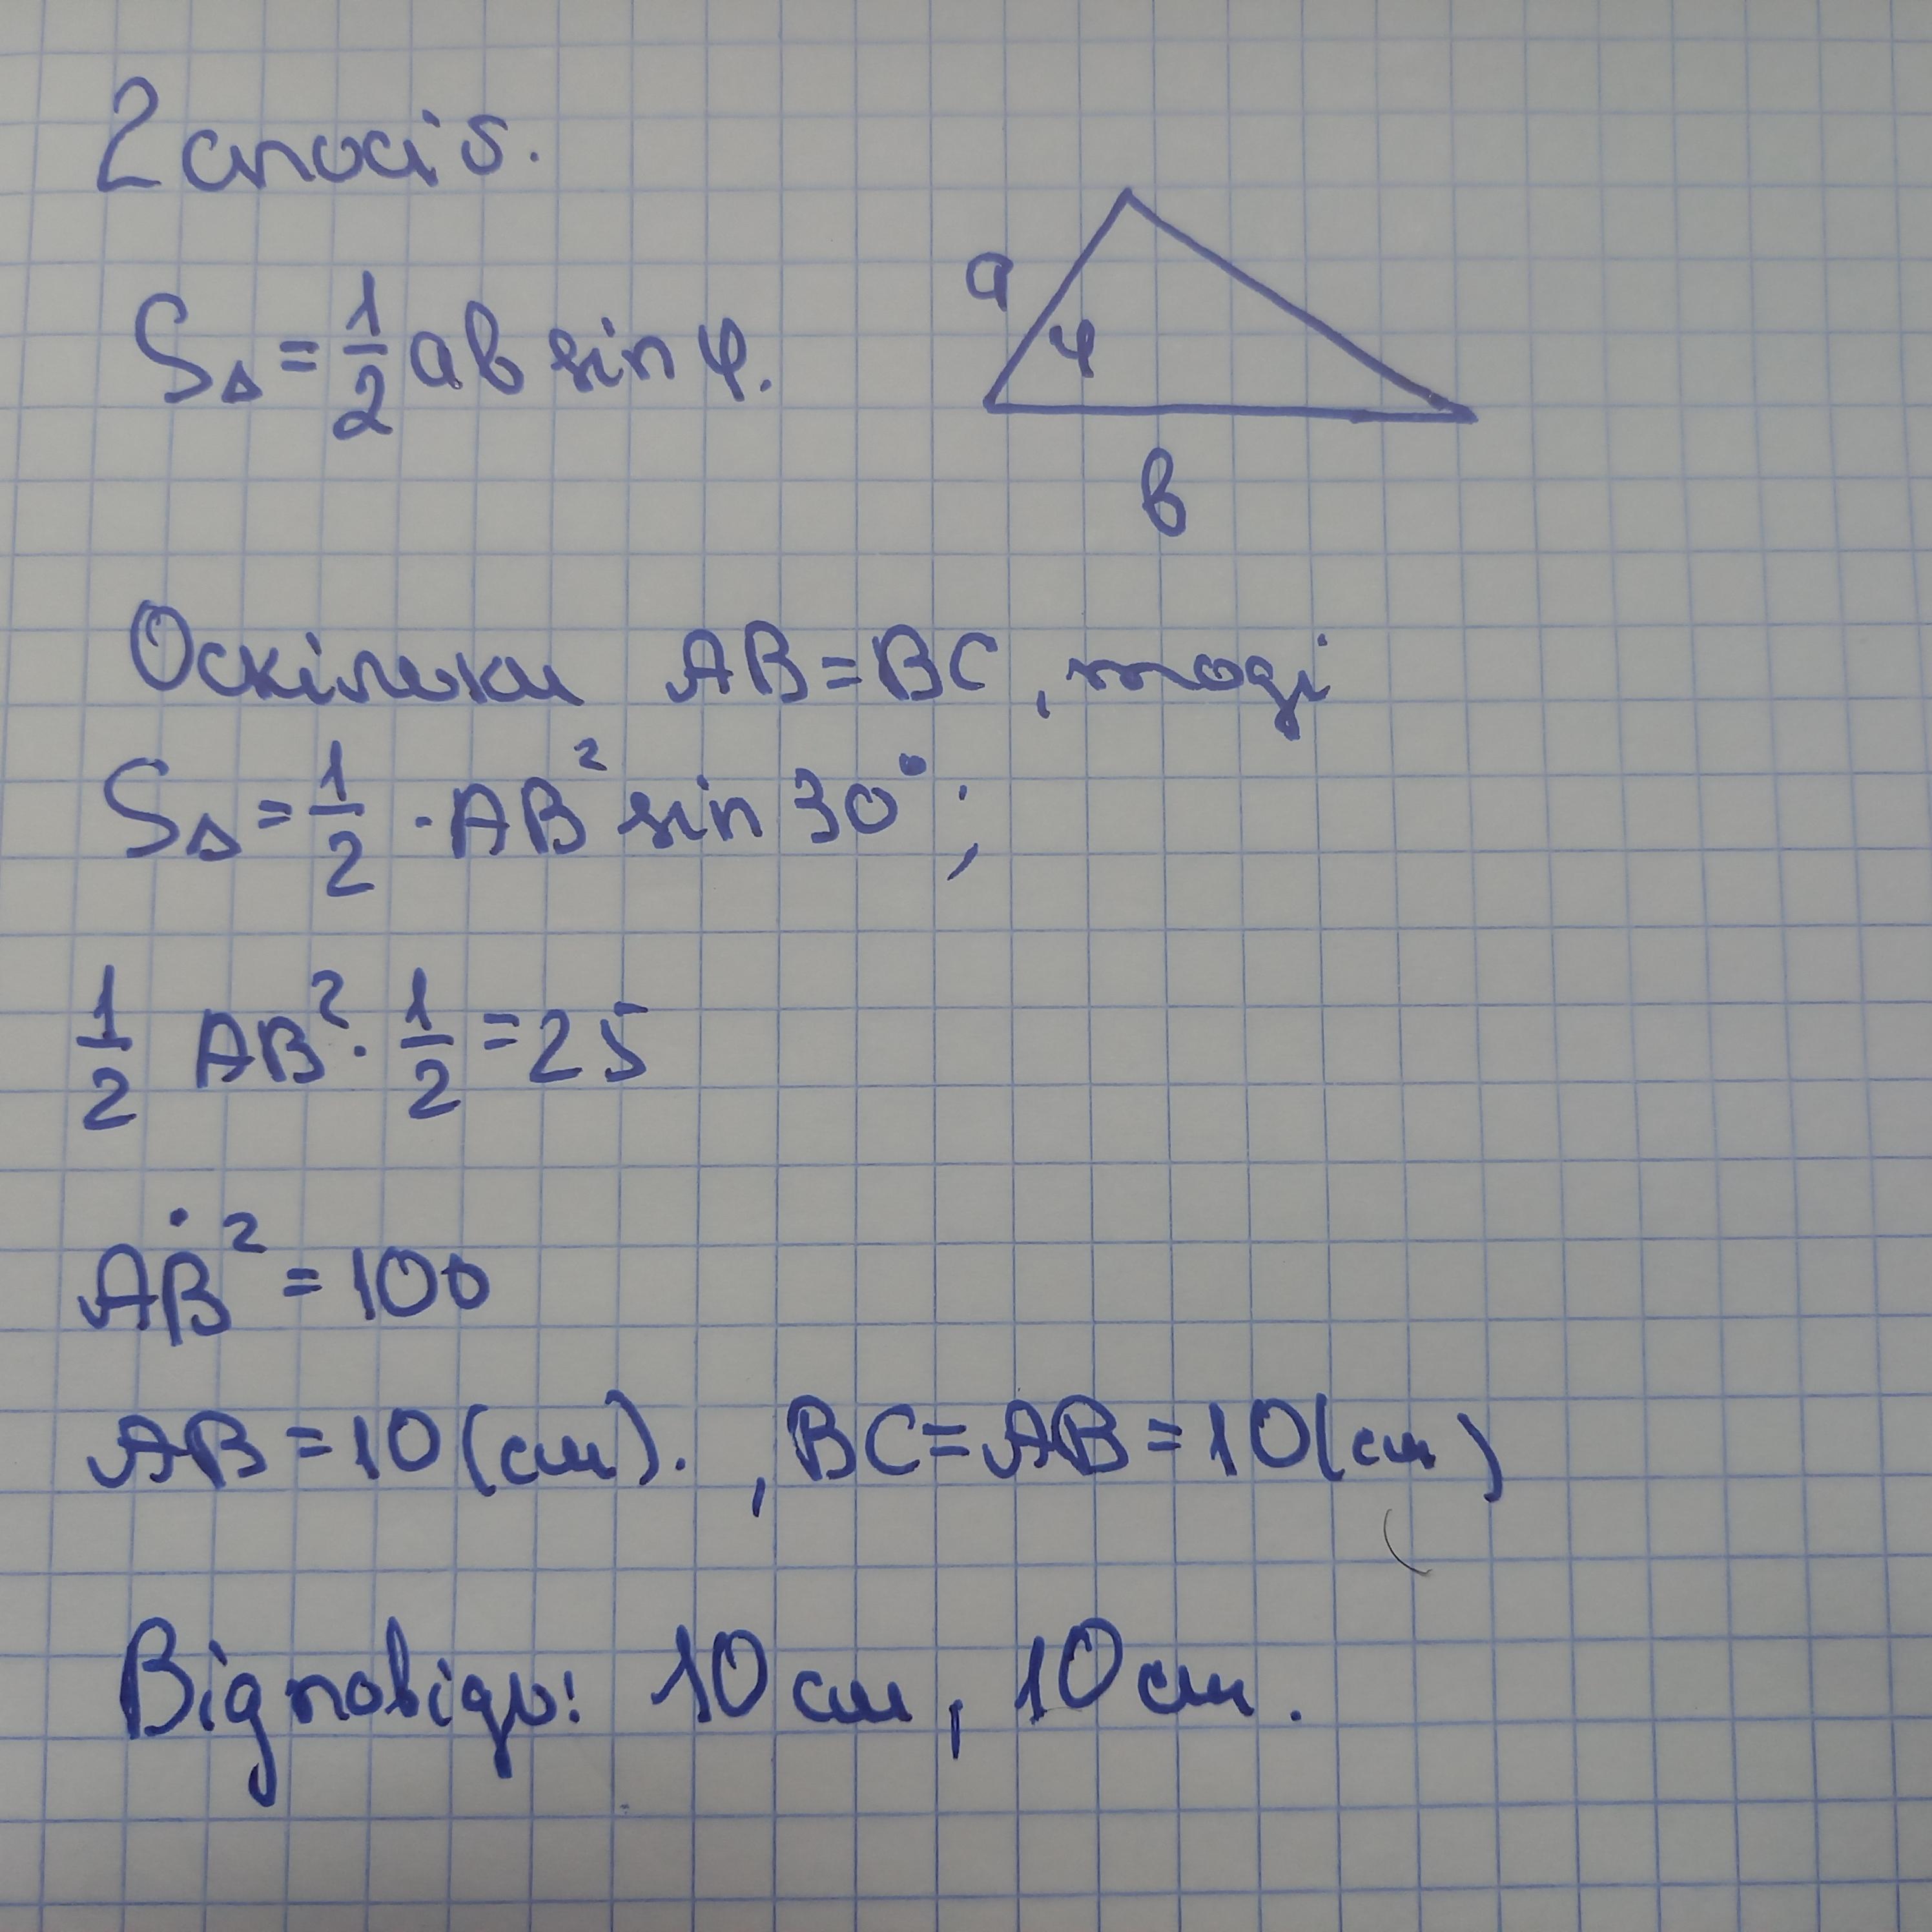 2 спосіб.
S△ = 1/2 ab sin φ.
a
φ
b
Оскільки AB = BC, тоді
S△ = 1/2 · AB² sin 30°;
1/2 AB² · 1/2 = 25
AB² = 100
AB = 10 (см). , BC = AB = 10 (см)
Відповідь: 10 см, 10 см.